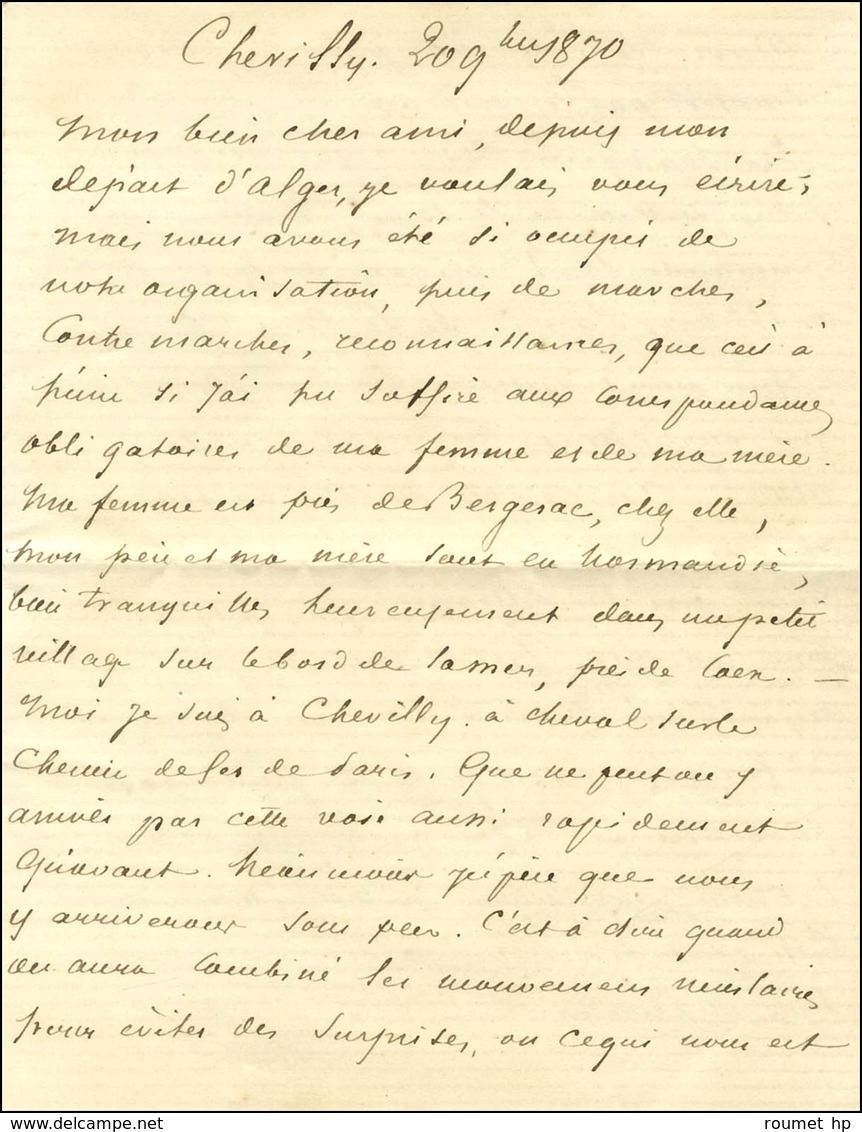 Chevilly. 20 9bre 1870
Mon bien cher ami, depuis mon
départ d'Alger, je voulais vous écrire;
mais nous avons été si occupés de
notre organisation, puis de marches,
Contre marches, reconnaissances, que c'est à
peine si j'ai pu suffire aux Correspondances
obligatoires de ma femme et de ma mère.
Ma femme est près de Bergerac, chez elle,
mon père et ma mère sont en Normandie,
bien tranquilles heureusement dans un petit
village sur le bord de la mer, près de Caen. —
Moi je suis à Chevilly. à cheval sur le
Chemin de fer de Paris. Que ne peut on y
arriver par cette voie aussi rapidement
qu'avant. Néanmoins j'espère que nous
y arriverons sous peu. C'est à dire quand
on aura Combiné les mouvements nécessaires
pour éviter des surprises, ou ce qui nous est
roumet hp delcampe.net